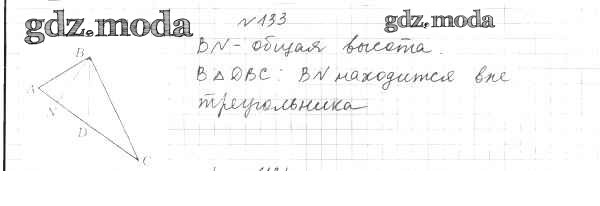 gdz.moda
№133
gdz.moda
BN - общая высота.
В △DBC: BN находится вне
треугольника
B
A
N
D
C